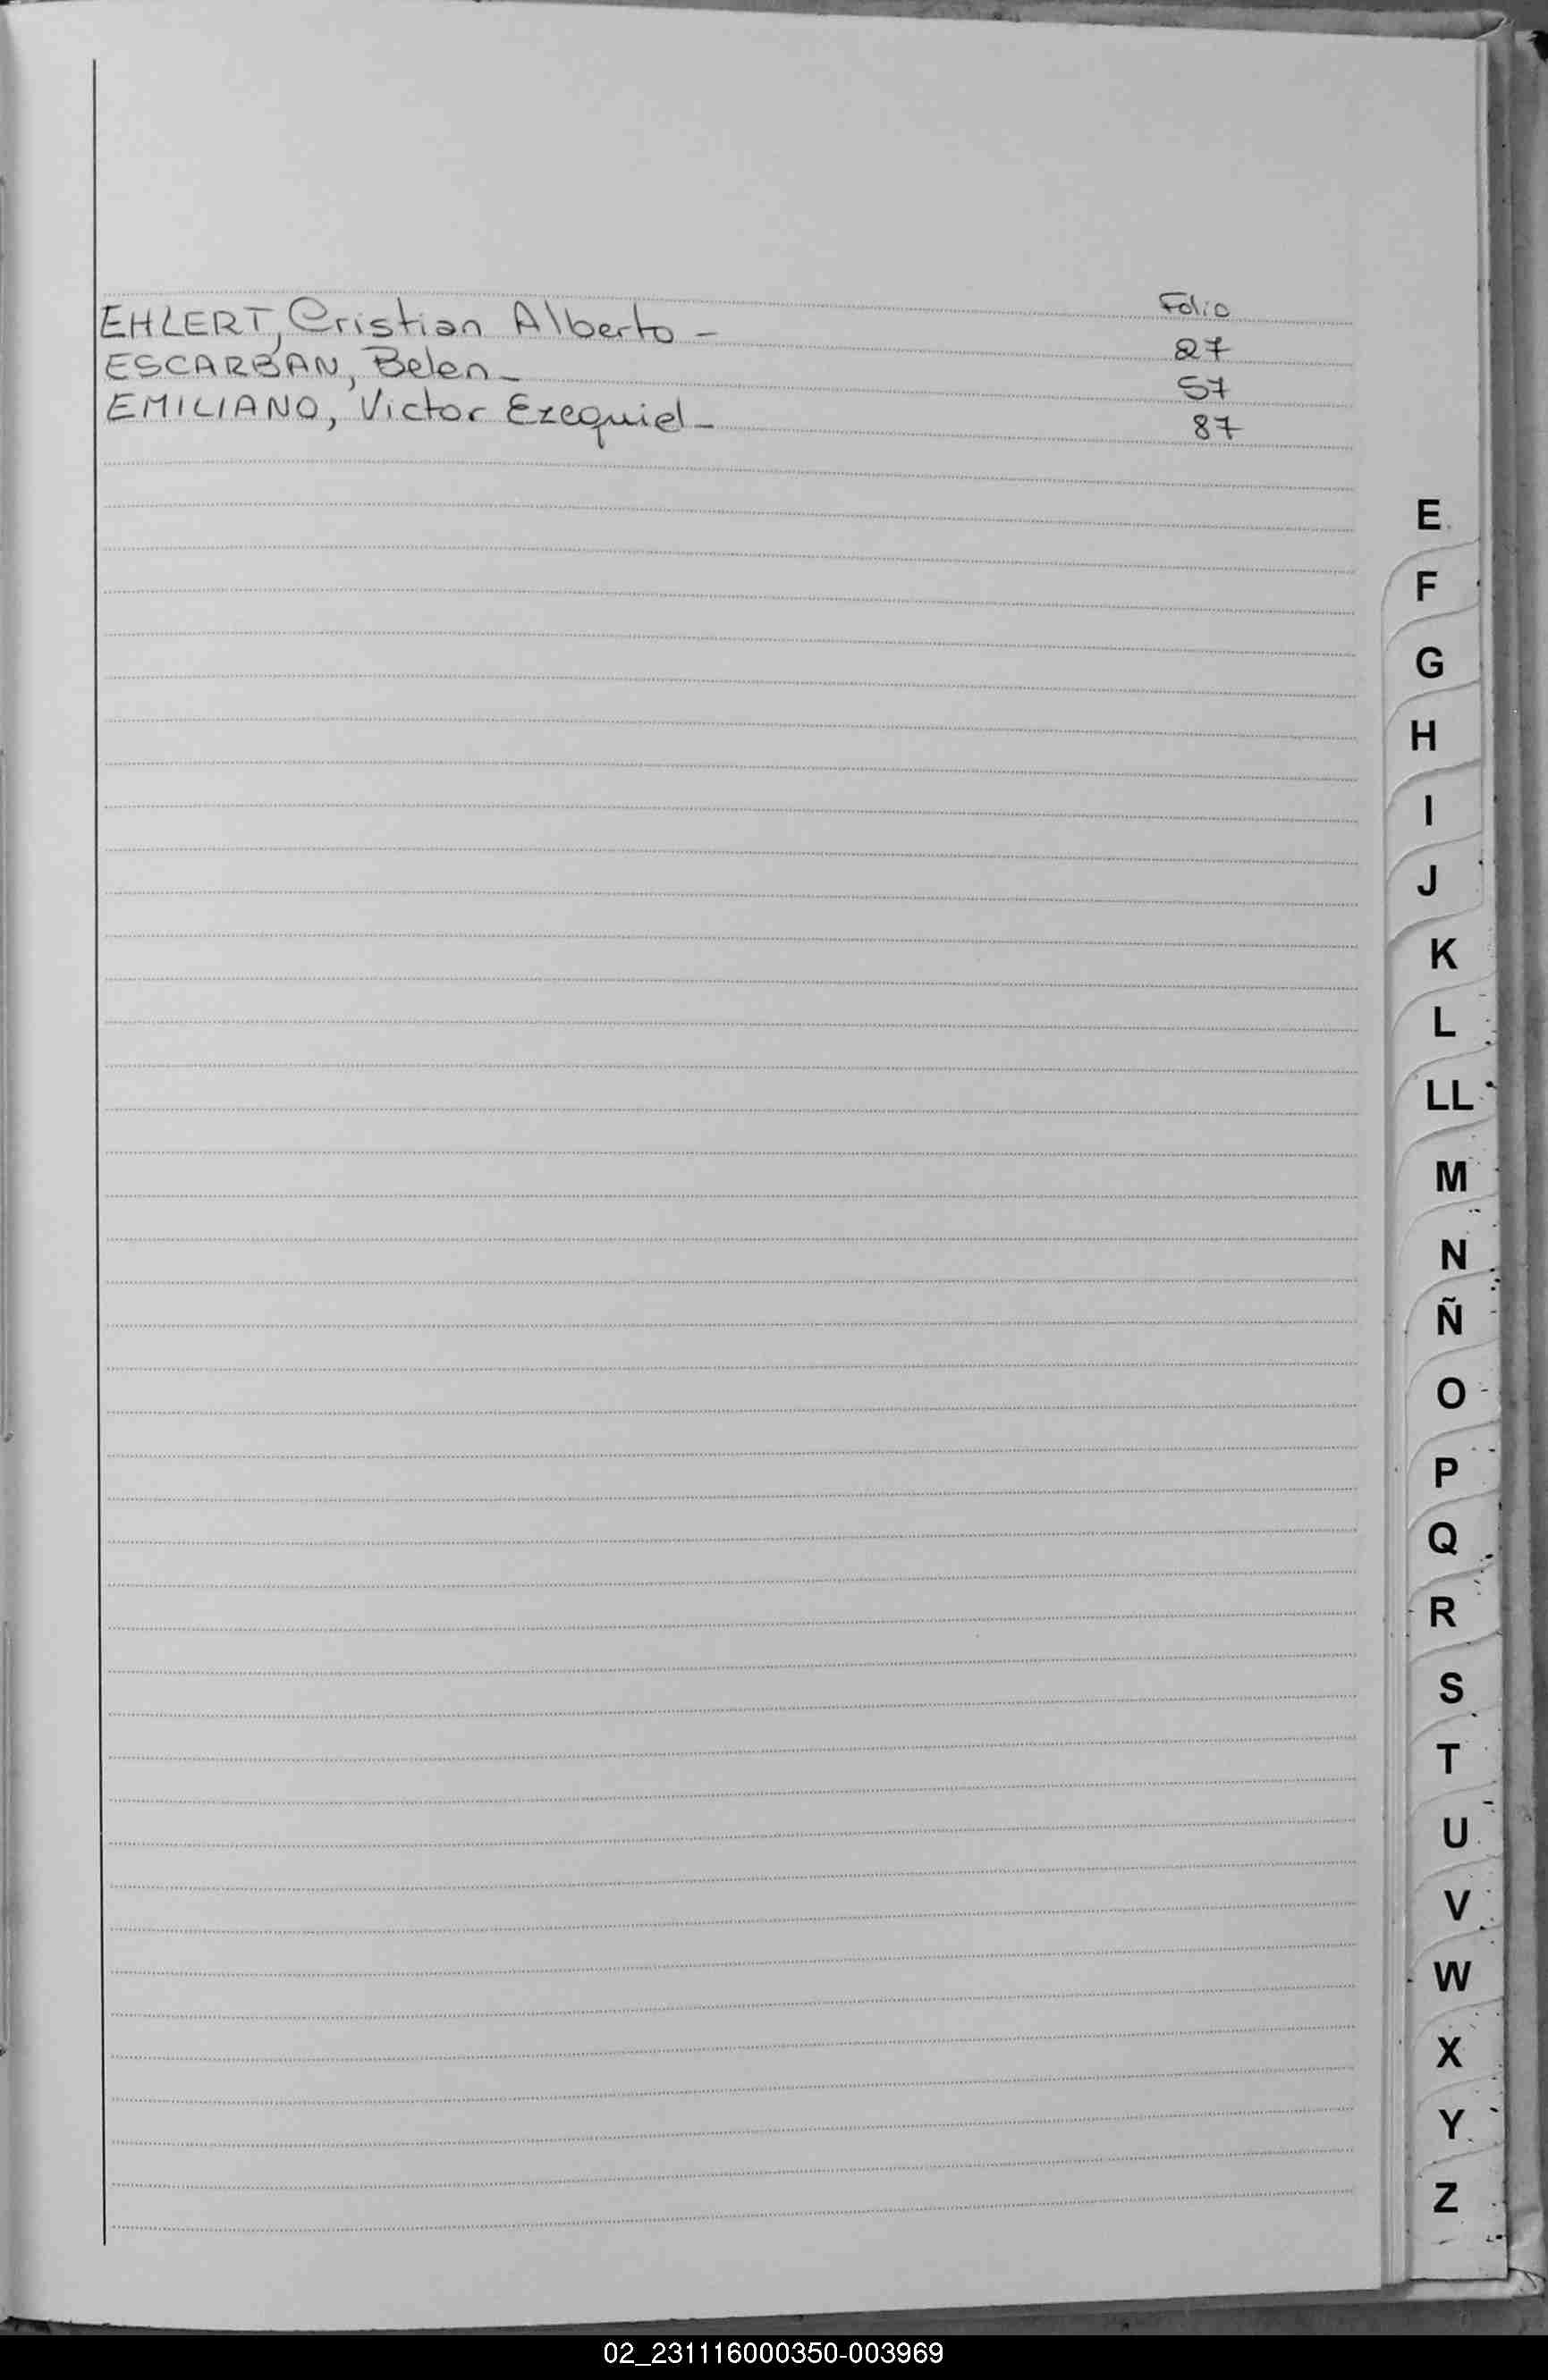 Folio
EHLERT, Cristian Alberto - 27
ESCARBAN, Belen - 57
EMILIANO, Victor Ezequiel - 87
E
F
G
H
I
J
K
L
LL
M
N
Ñ
O
P
Q
R
S
T
U
V
W
X
Y
Z
02_231116000350-003969